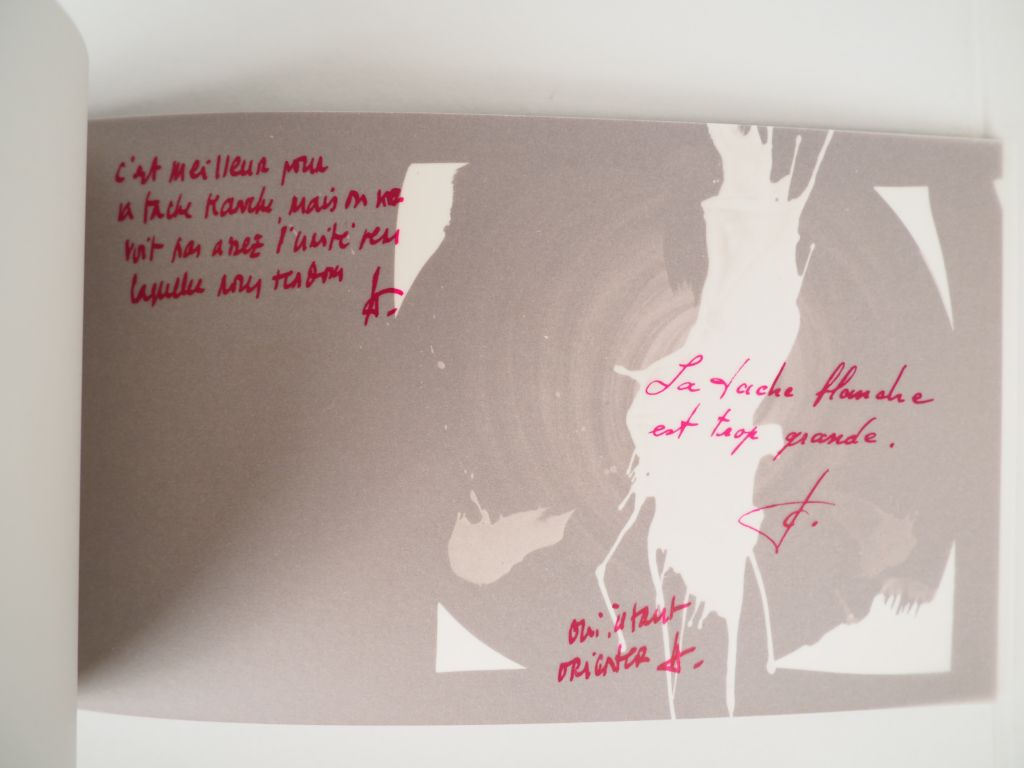 c'est meilleur pour
la tache blanche, mais on ne
voit pas assez l'unité vers
laquelle nous tendons
A.
La tache blanche
est trop grande.
J.
oui, il faut
ORIENTER A.